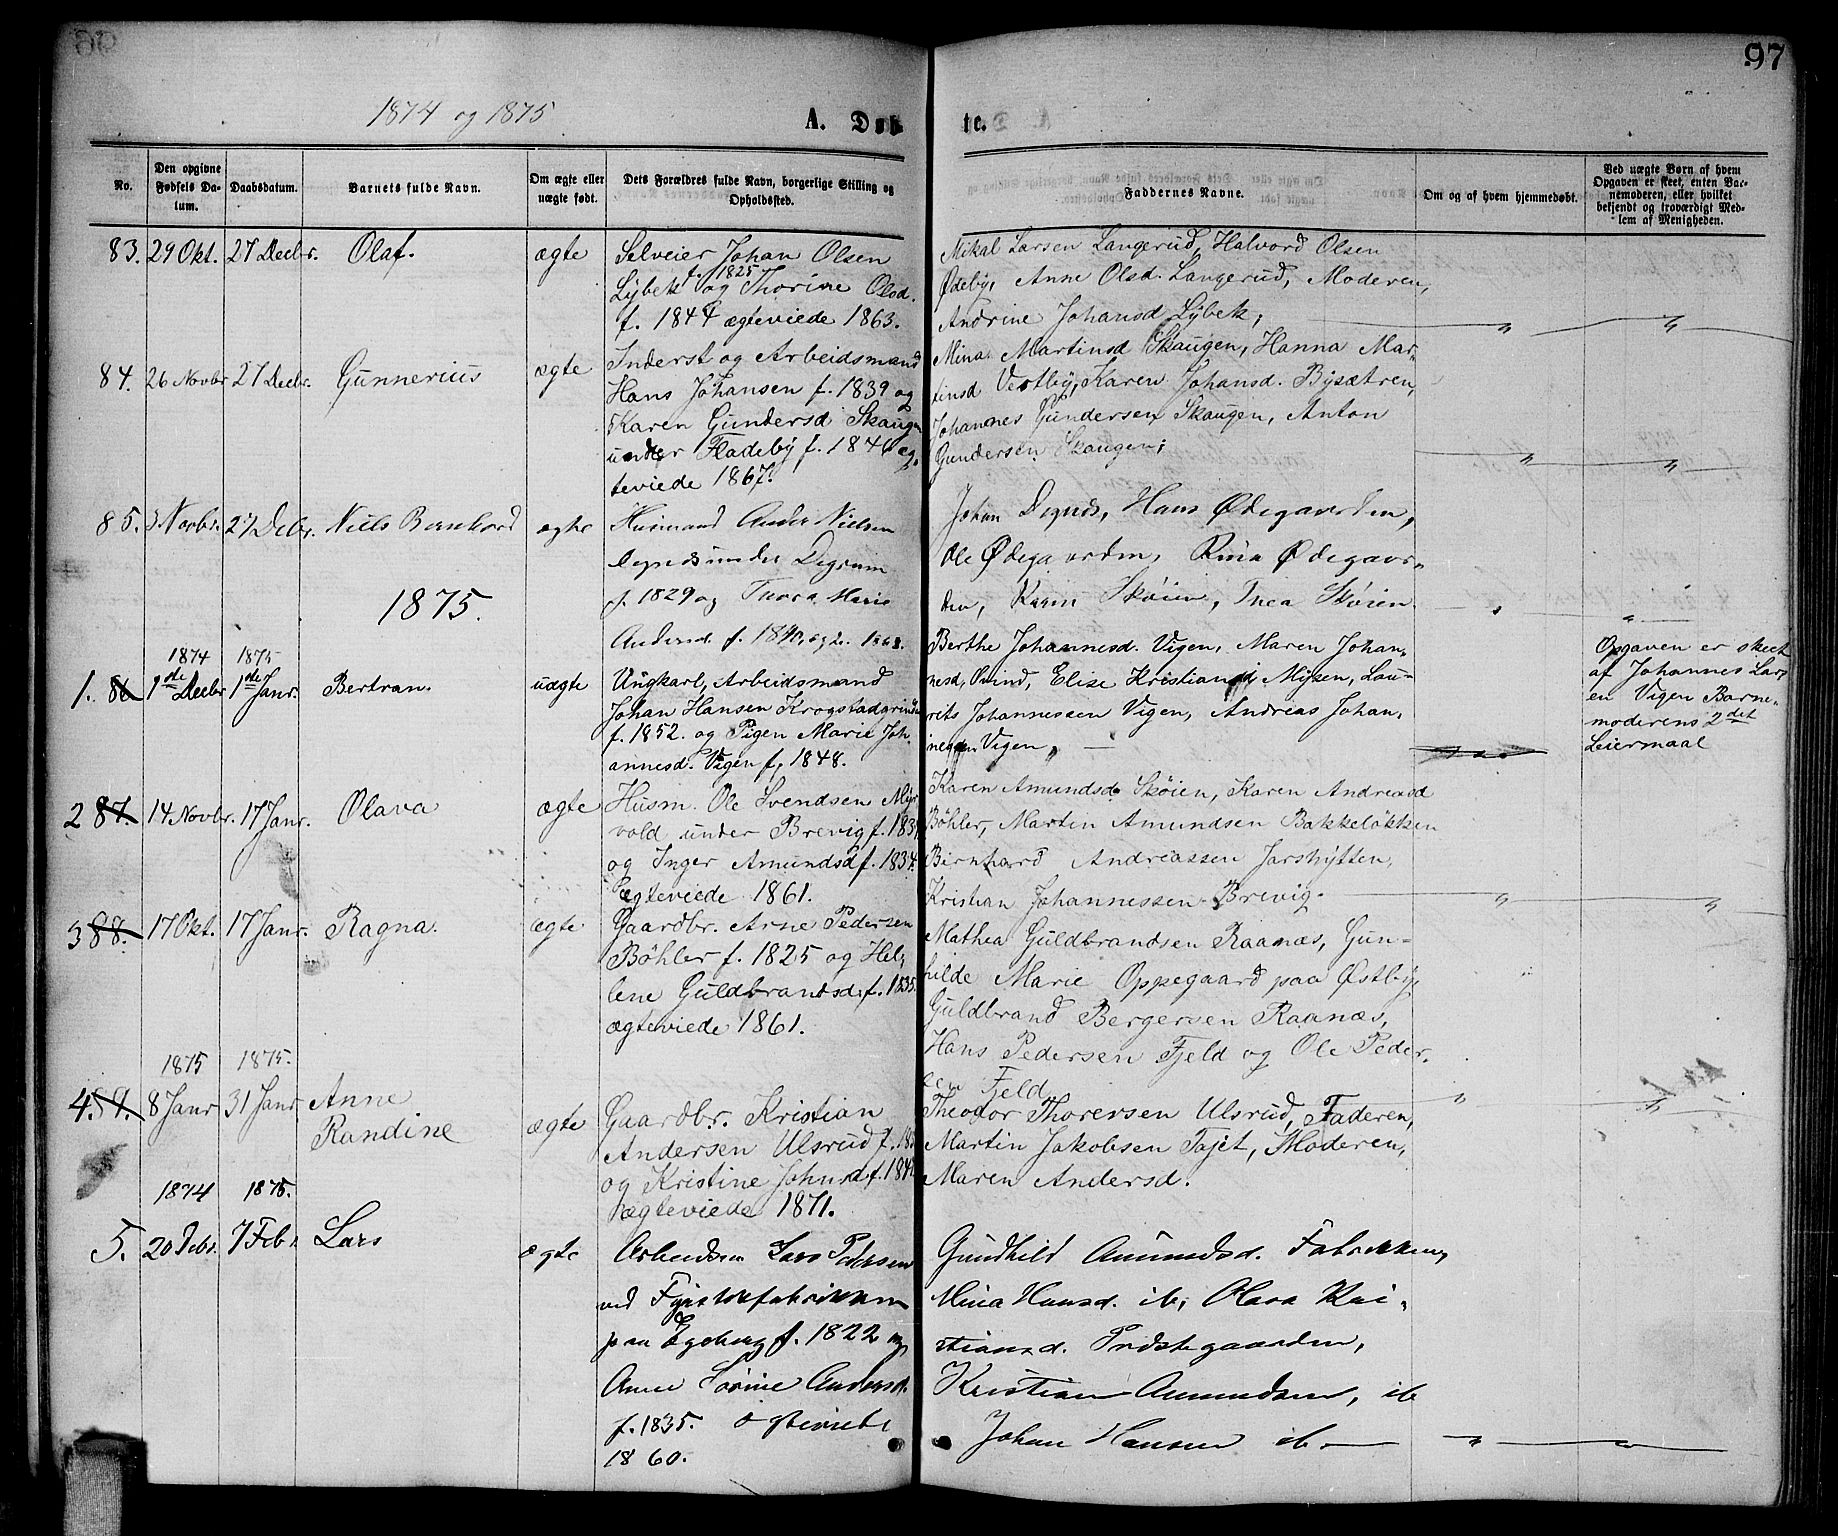 97
1874 og 1875
A. Døb
te.
No.
Den opgivne Fødsels Da-
tum.
Daabsdatum.
Barnets fulde Navn.
Om ægte eller uægte født.
Dets Forældres fulde Navn, borgerlige Stilling og Opholdssted.
Faddernes Navne.
Om og af hvem hjemmedøbt.
Ved uægte Børn af hvem
Opgaven er skeet, enten Bar-
nemoderen, eller hvilket
bekjendt og troværdigt Med-
lem af Menigheden.
83. 29 Okt. 27 Decbr. Olaf. ægte
Selveier Johan Olsen
f. 1825
Lÿbek og Thorine Olsd.
f. 1844 ægteviede 1863.
Mikal Larsen Langerud, Halvord Olsen
Ødeby, Anne Olsd. Langerud, Moderen,
Andrine Johansd Lÿbek;
84. 26 Novbr 27 Decbr. Gunnerius ægte
Inderst og Arbeidsmand
Hans Johansen f. 1839 og
Karen Gundersd Skaugen
under Fladebÿ f. 1846 æg-
teviede 1867.
Mina Martinsd Skaugen, Hanna Mar-
tinsd Vestby, Karen Johansd. Bÿsætren,
Johannes Gundersen Skaugen, Anton
Gundersen Skaugen;
85. 3 Novbr. 27 Debr. Niels Bernhard ægte
Husmand Anders Nielsen
under Degrum
f. 1829 og Thora Marie
Andersd. f. 1840,
Johan Degnes, Hans Ødegaarden,
Ole Ødegaarden, Ødegaar-
den, Karen Skøien, Skøien
1875.
1874 1875
1. 86 1de Decbr 1de Janr. Bertran. uægte
Ungkarl, Arbeidsmand
Johan Hansen Krogstadgrinden
f. 1852. og Pigen Marie Joh-
annesd. Vigen f. 1848.
Berthe Johannesd. Vigen, Maren Johan-
nesd, Elise Kristiansd Mÿsen, Lau-
rits Johannessen Vigen, Andreas Johan-
nessen Vigen
Opgaven er skeet
af Johannes Lars
en Vigen Barne-
moderens 2det
Leiermaal
2 87. 14 Novbr. 17 Janr. Olava ægte
Husm. Ole Svendsen Mÿr
vold under Brevig f. 183
og Inger Amundsd f. 1834.
ægteviede 1861.
Karen Amundsd Skøien, Karen Andreasd
Bøhler, Martin Amundsen Bakkeløkken
Bernhard Andreassen Jarshÿtten,
Kristian Johannessen Brevig.
3 88. 17 Okt. 17 Janr. Ragna. ægte
Gaardbr. Arne Pedersen
Bøhler f. 1825 og Hel-
lene Guldbrandsd. f. 1835.
ægteviede 1861.
Mathea Guldbrandsen Raanæs, Gun-
hilde Marie Oppegaard paa Østby,
Guldbrand Bergersen Raanæs,
Hans Pedersen Fjeld og Ole Peder-
sen Fjeld
1875 1875.
4. 89. 8 Janr 31 Janr Anne
Randine ægte
Gaardbr. Kristian
Andersen Ulsrud f.
og Kristine Johnsd f. 184
ægteviede 1871.
Theodor Thorersen Ulsrud, Faderen,
Martin Jakobsen Tajet, Moderen,
Maren Andersd.
1874 1875.
5. 20 Debr. 7 Febr. Lars ægte
Lars Pedersen
ved Fyrstikfabrikken
paa Egeberg f. 1822 og
Anne Sørine Andersd.
f. 1835. ægteviede
1860.
Gundhild Amundsd. Fabrikken,
Mina Hansd. ib, Olava Kri-
stiansd. Prestegaarden,
Kristian Amundsen, ib
Johan Hansen ib